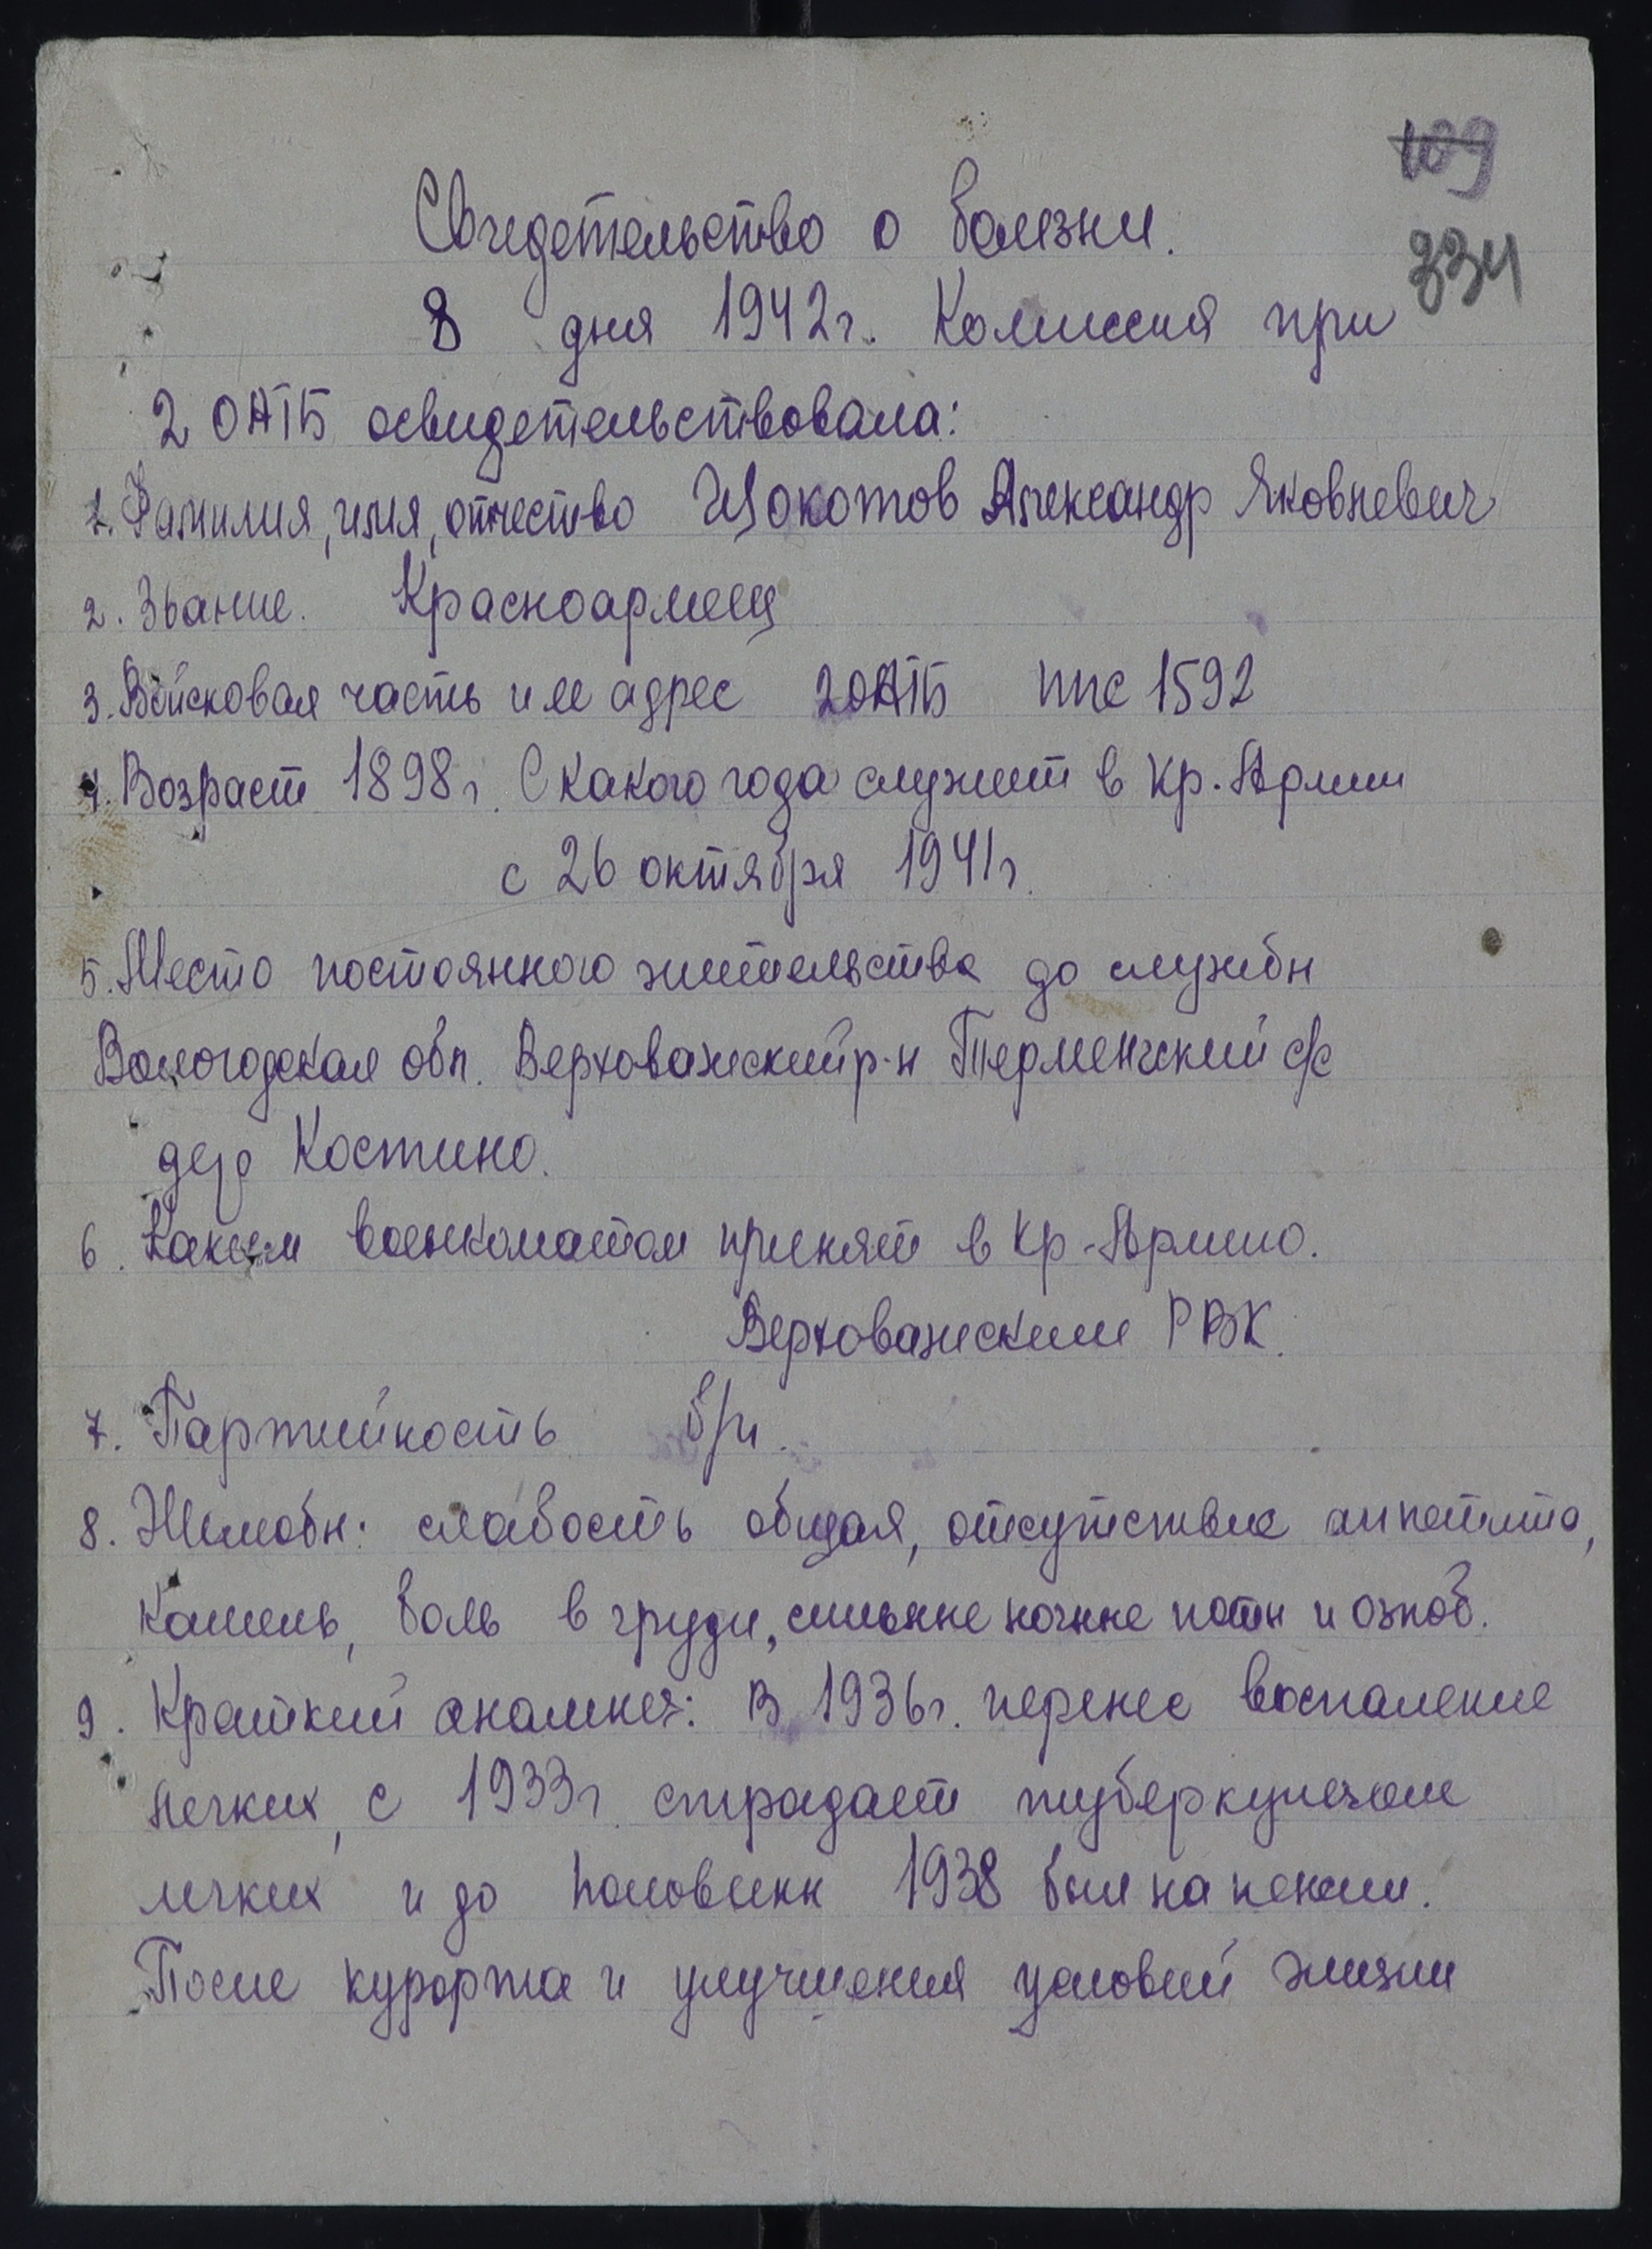 109
334
Свидетельство о болезни.
8 дня 1942 г. Комиссия при
2 ОАТБ освидетельствовала:
1. Фамилия, имя, отчество Щокотов Александр Яковлевич
2. Звание. Красноармеец
3. Войсковая часть и ее адрес 2 ОАТБ ппс 1592
4. Возраст 1898 г. С какого года служит в Кр. Армии
с 26 октября 1941 г.
5. Место постоянного жительства до службы
Вологодская обл. Верховажский р-н Терменгский с/с
дер Костино.
6. Каким военкоматом принят в Кр-Армию.
Верховажским РВК.
7. Партийность б/п.
8. Жалобы: слабость общая, отсутствие аппетита,
кашель, боль в груди, сильные ночные поты и озноб.
9. Краткий анамнез: В 1936 г. перенес воспаление
легких, с 1933 г. страдает туберкулезом
легких и до половины 1938 был на пенсии.
После курорта и улучшения условий жизни